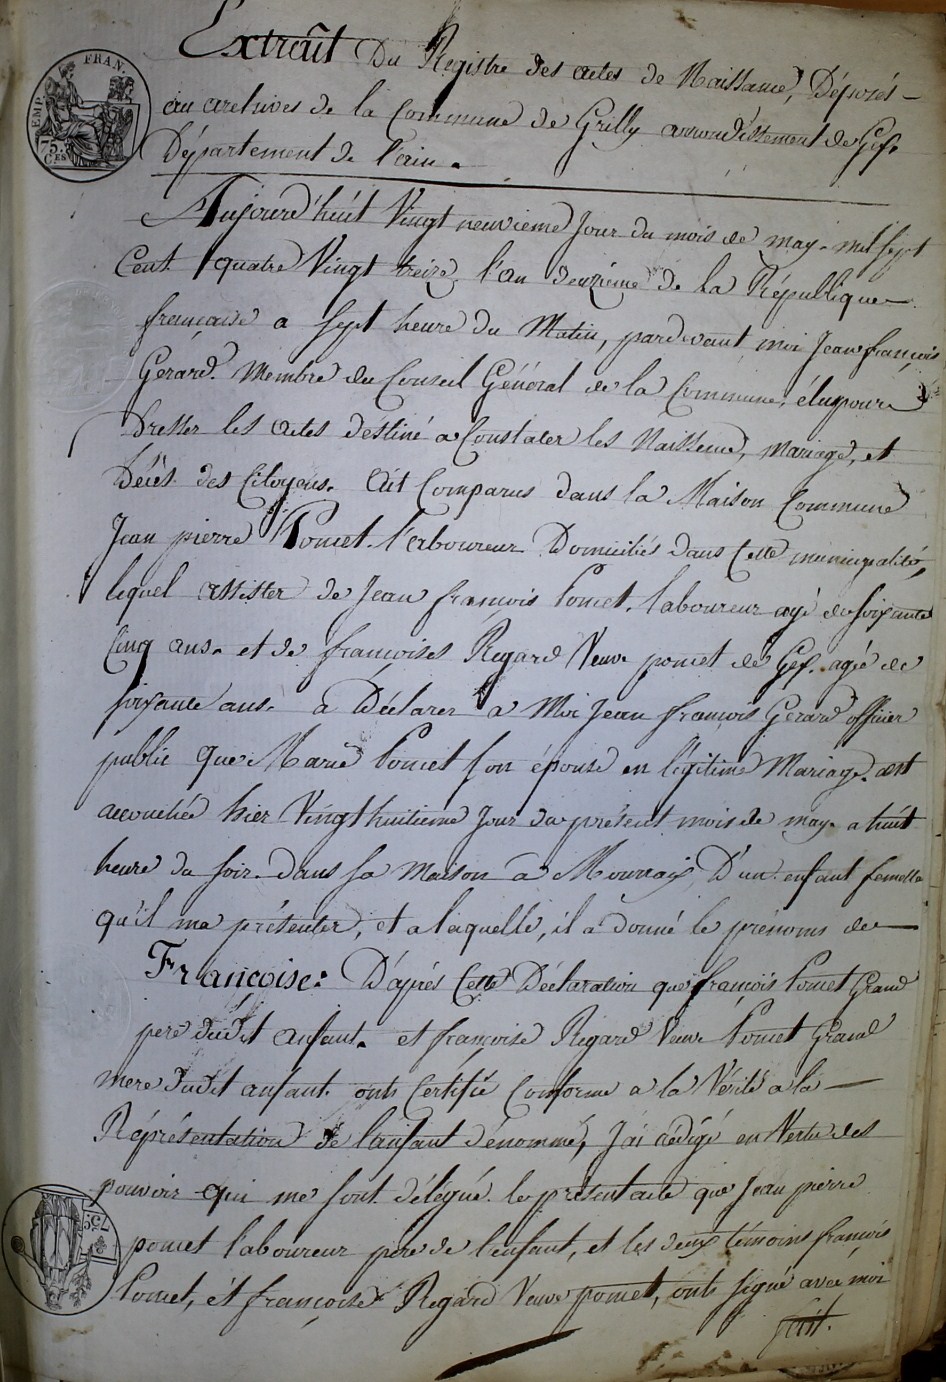 Extrait Du Registre des actes de Naissance, Déposés
au archives de la Commune de Grilly arrondissement de Gex,
Département de l'ain.
EMP. FRAN.
75. CES
Aujourd'huit Vingt neuvieme Jour du mois de may. mil Sept
Cent quatre Vingt treize, l'an deuxieme de la République
francaise a Sept heure du Matin, pardevant moi Jean françois
Gerard. Membre du Conseil Général de la Commune, élu pour
Dresser les actes destiné a Constater les Naissence, mariage, et
Décés des Citoyens. Est Comparus dans la Maison Commune
Jean pierre Pomet. laboureur Domicilié dans Cette municipalité,
lequel assister de Jean françois Pomet. laboureur agé de Soixante
Cinq ans. et de francoises Regard Veuve pomet de Gex. agée de
soixante ans. a Déclarer a Moi Jean françois Gerard officier
public que Marie Pomet son épouse en légitime Mariage. est
accouchée hier Vingt huitieme Jour du présent mois de may. a huit
heure du soir. dans sa maison a Mourex, D'un enfant femelle
qu'il ma présenter, et a laquelle, il a donné le prénoms de
Françoise: D'aprés Cette Déclaration que françois Pomet Grand
pere dudit anfant. et françoise Regard Veuve Pomet Grand
mere dudit anfant. onts Certifié Conforme a la Vérité a la
Réprésentation de l'anfant dénommé, J'ai rédigé en Vertu des
pouvoir qui me sont délégué. le present acte que Jean pierre
pomet laboureur pere de l'enfant, et les deux témoins françois
Pomet, et françoise Regard Veuve pomet, onts signé avec moi
fait.
75